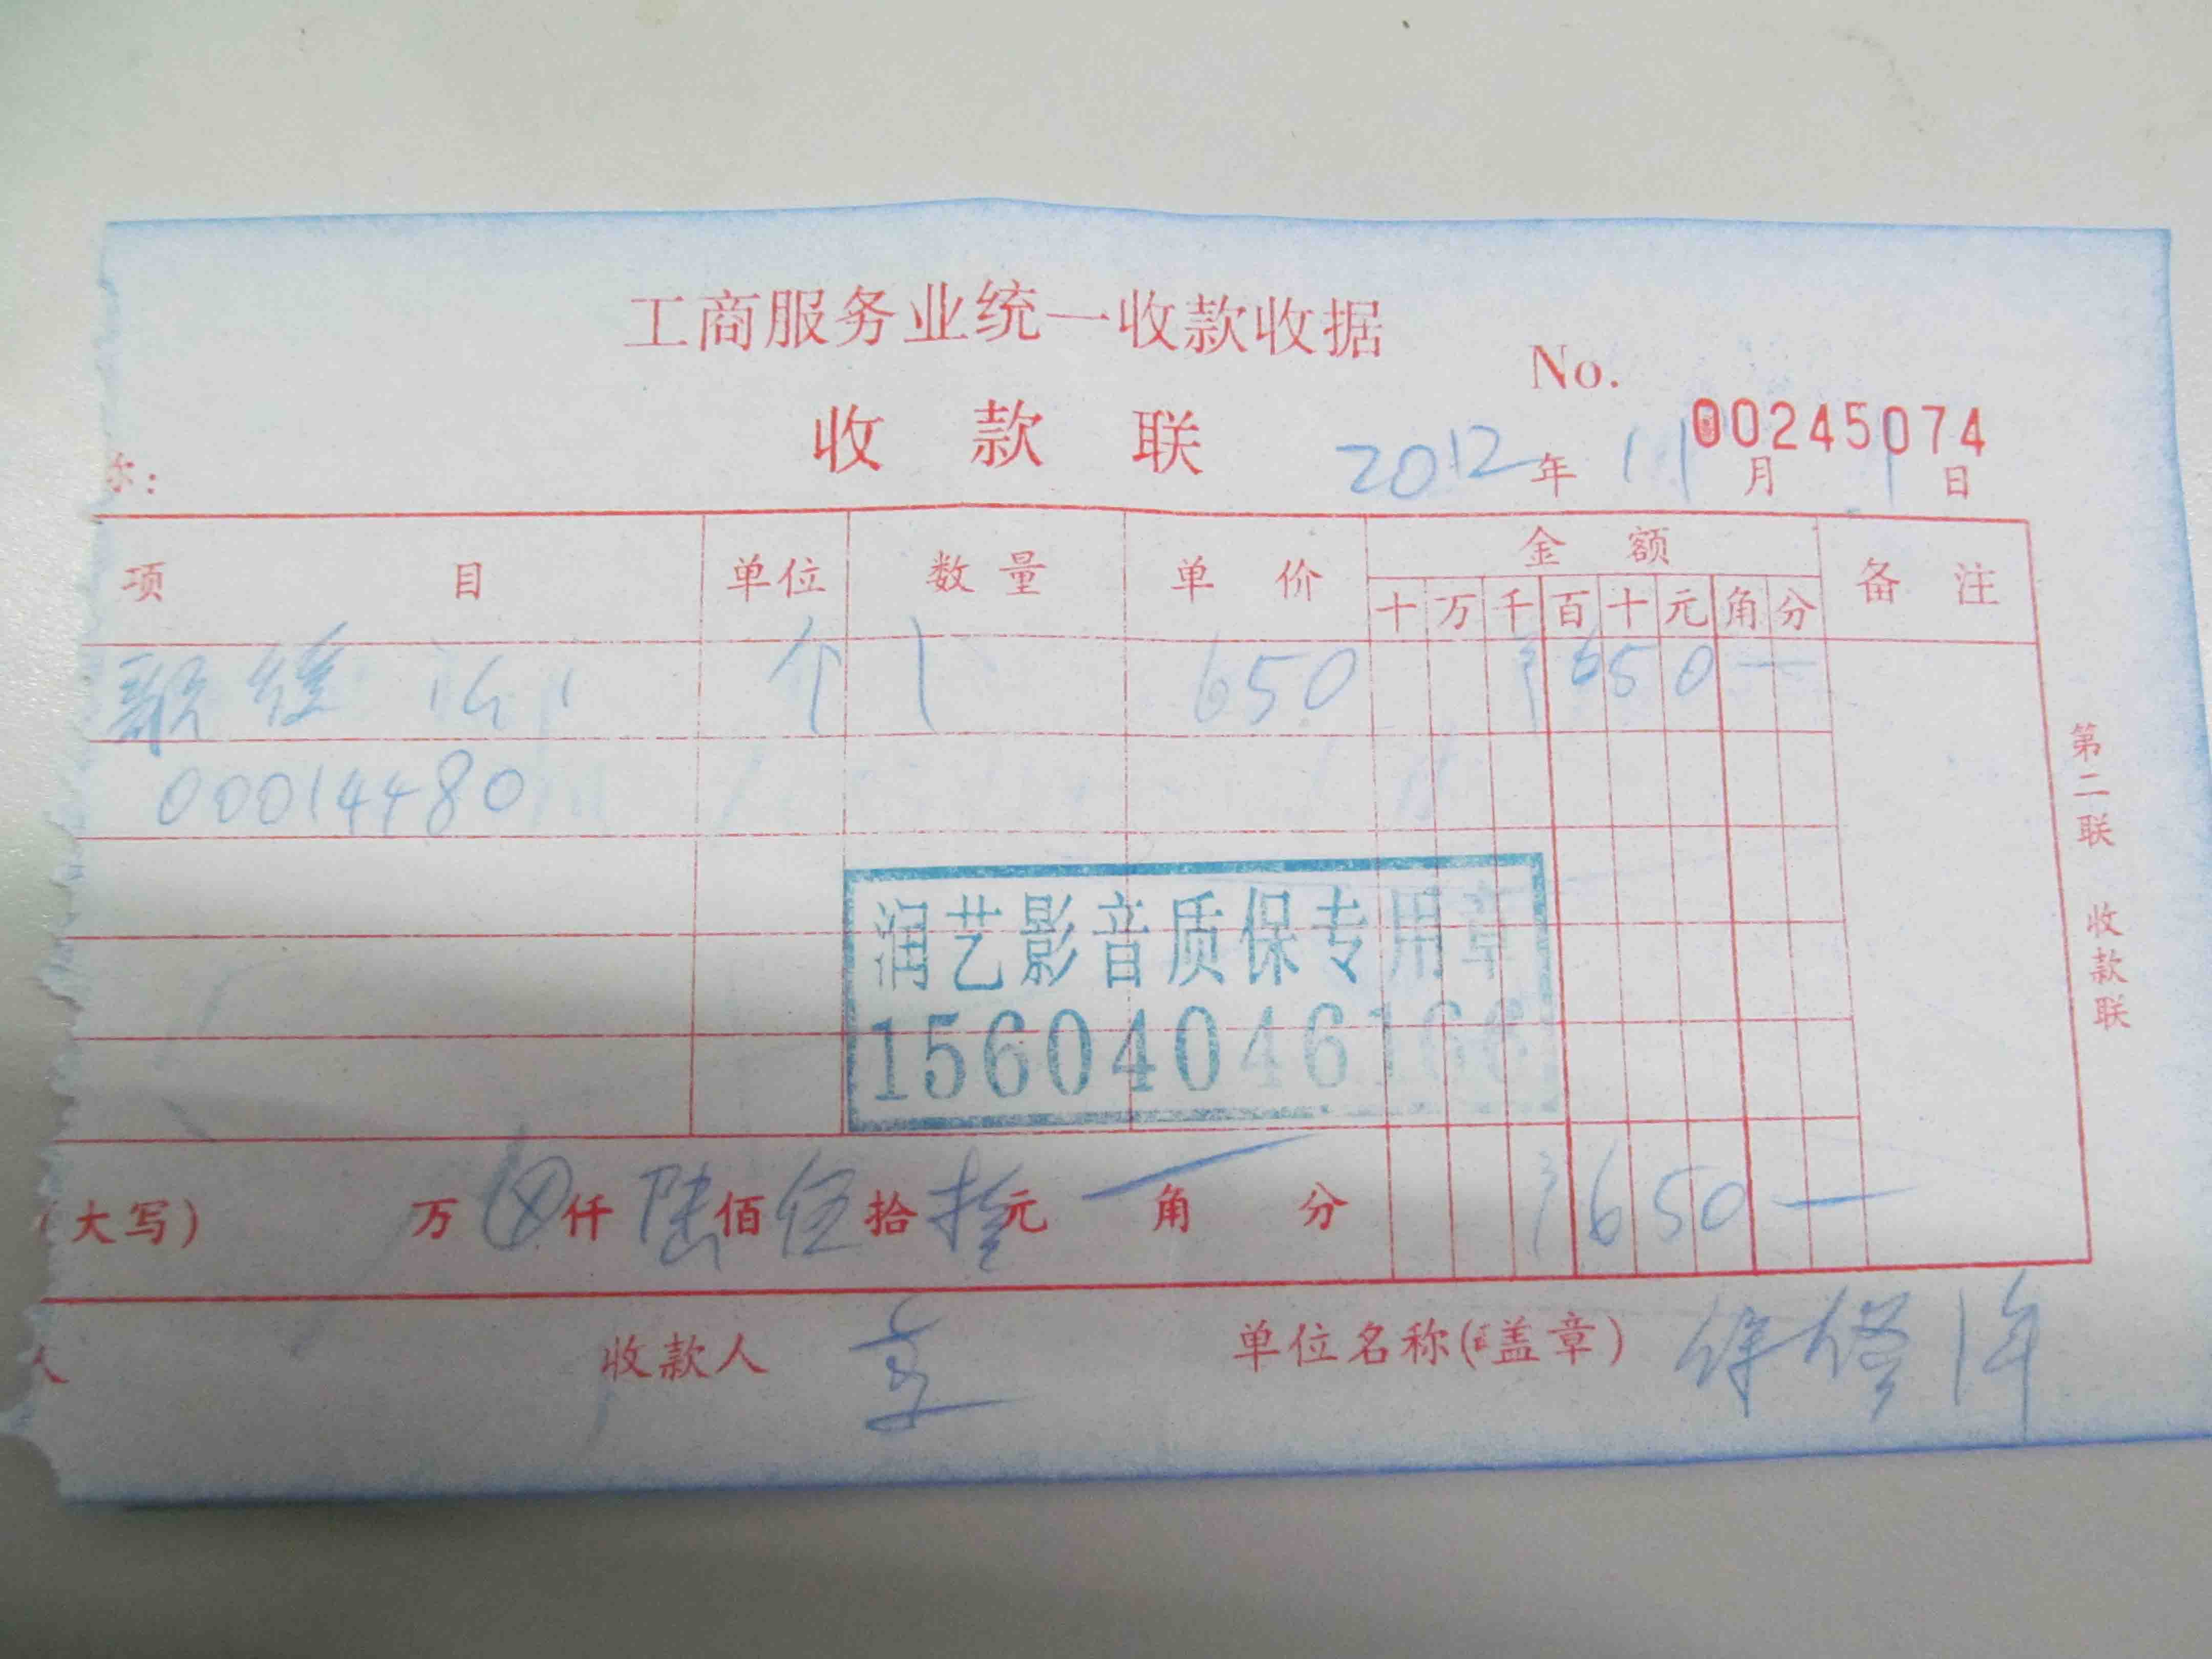 工商服务业统一收款收据
收款联
No. 00245074
2012年11月1日
项目 单位 数量 单价 金额 备注
十 万 千 百 十 元 角 分
个 1 650 650 —
00014480
润艺影音质保专用章
15604046166
(大写) 万 ⊗ 仟 陆 佰 伍 拾 元 角 分 650 —
收款人 单位名称(盖章)
第二联 收款联